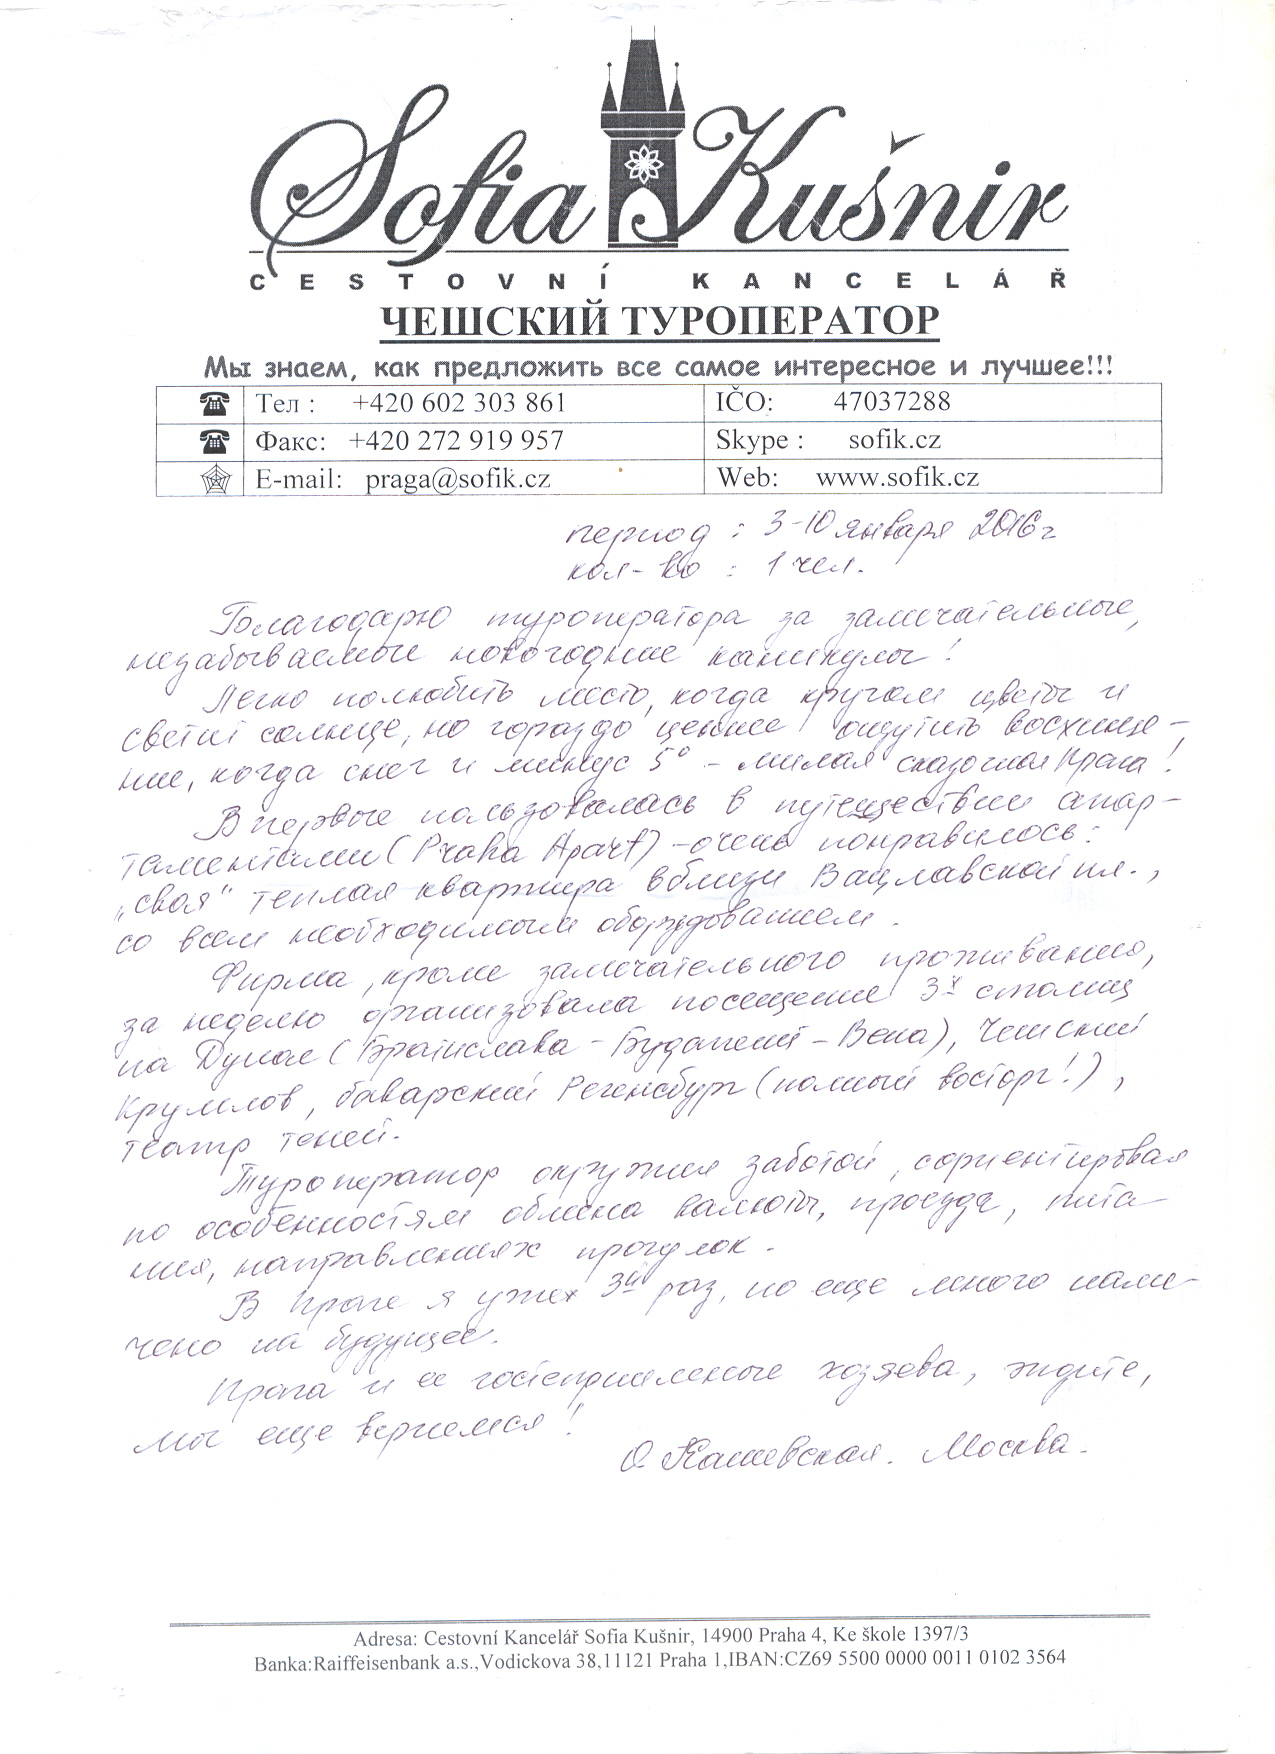 Sofia Kušnir
CESTOVNÍ KANCELÁŘ
ЧЕШСКИЙ ТУРОПЕРАТОР
Мы знаем, как предложить все самое интересное и лучшее!!!
Тел : +420 602 303 861 IČO: 47037288
Факс: +420 272 919 957 Skype : sofik.cz
E-mail: praga@sofik.cz Web: www.sofik.cz
период : 3-10 января 2016 г
кол-во : 1 чел.
Благодарю туроператора за замечательные,
незабываемые новогодние каникулы!
Легко полюбить место, когда кругом цветы и
светит солнце, но гораздо ценнее ощутить восхище-
ние, когда снег и минус 5° - милая сказочная Прага!
Впервые пользовалась в путешествии апар-
таментами (Praha Apart) - очень понравилось:
„своя" теплая квартира вблизи Вацлавской пл.,
со всем необходимым оборудованием.
Фирма, кроме замечательного проживания,
за неделю организовала посещение 3х столиц
на Дунае (Братислава - Будапешт - Вена), Чешский
Крумлов, баварский Регенсбург (полный восторг!),
театр теней.
Туроператор окружил заботой, сориентировал
по особенностям обмена валюты, проезда, пита-
ния, направлениях прогулок.
В Праге я уже 3й раз, но еще много наме-
чено на будущее.
Прага и ее гостеприимные хозяева, ждите,
мы еще вернемся!
О. Машевская. Москва.
Adresa: Cestovní Kancelář Sofia Kušnir, 14900 Praha 4, Ke škole 1397/3
Banka:Raiffeisenbank a.s.,Vodickova 38,11121 Praha 1,IBAN:CZ69 5500 0000 0011 0102 3564